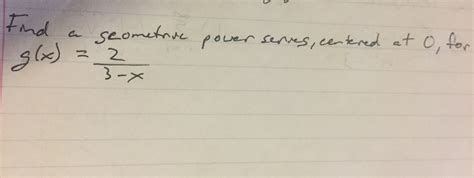 Find a geometric power series, centered at 0, for
g(x) = 2/3-x